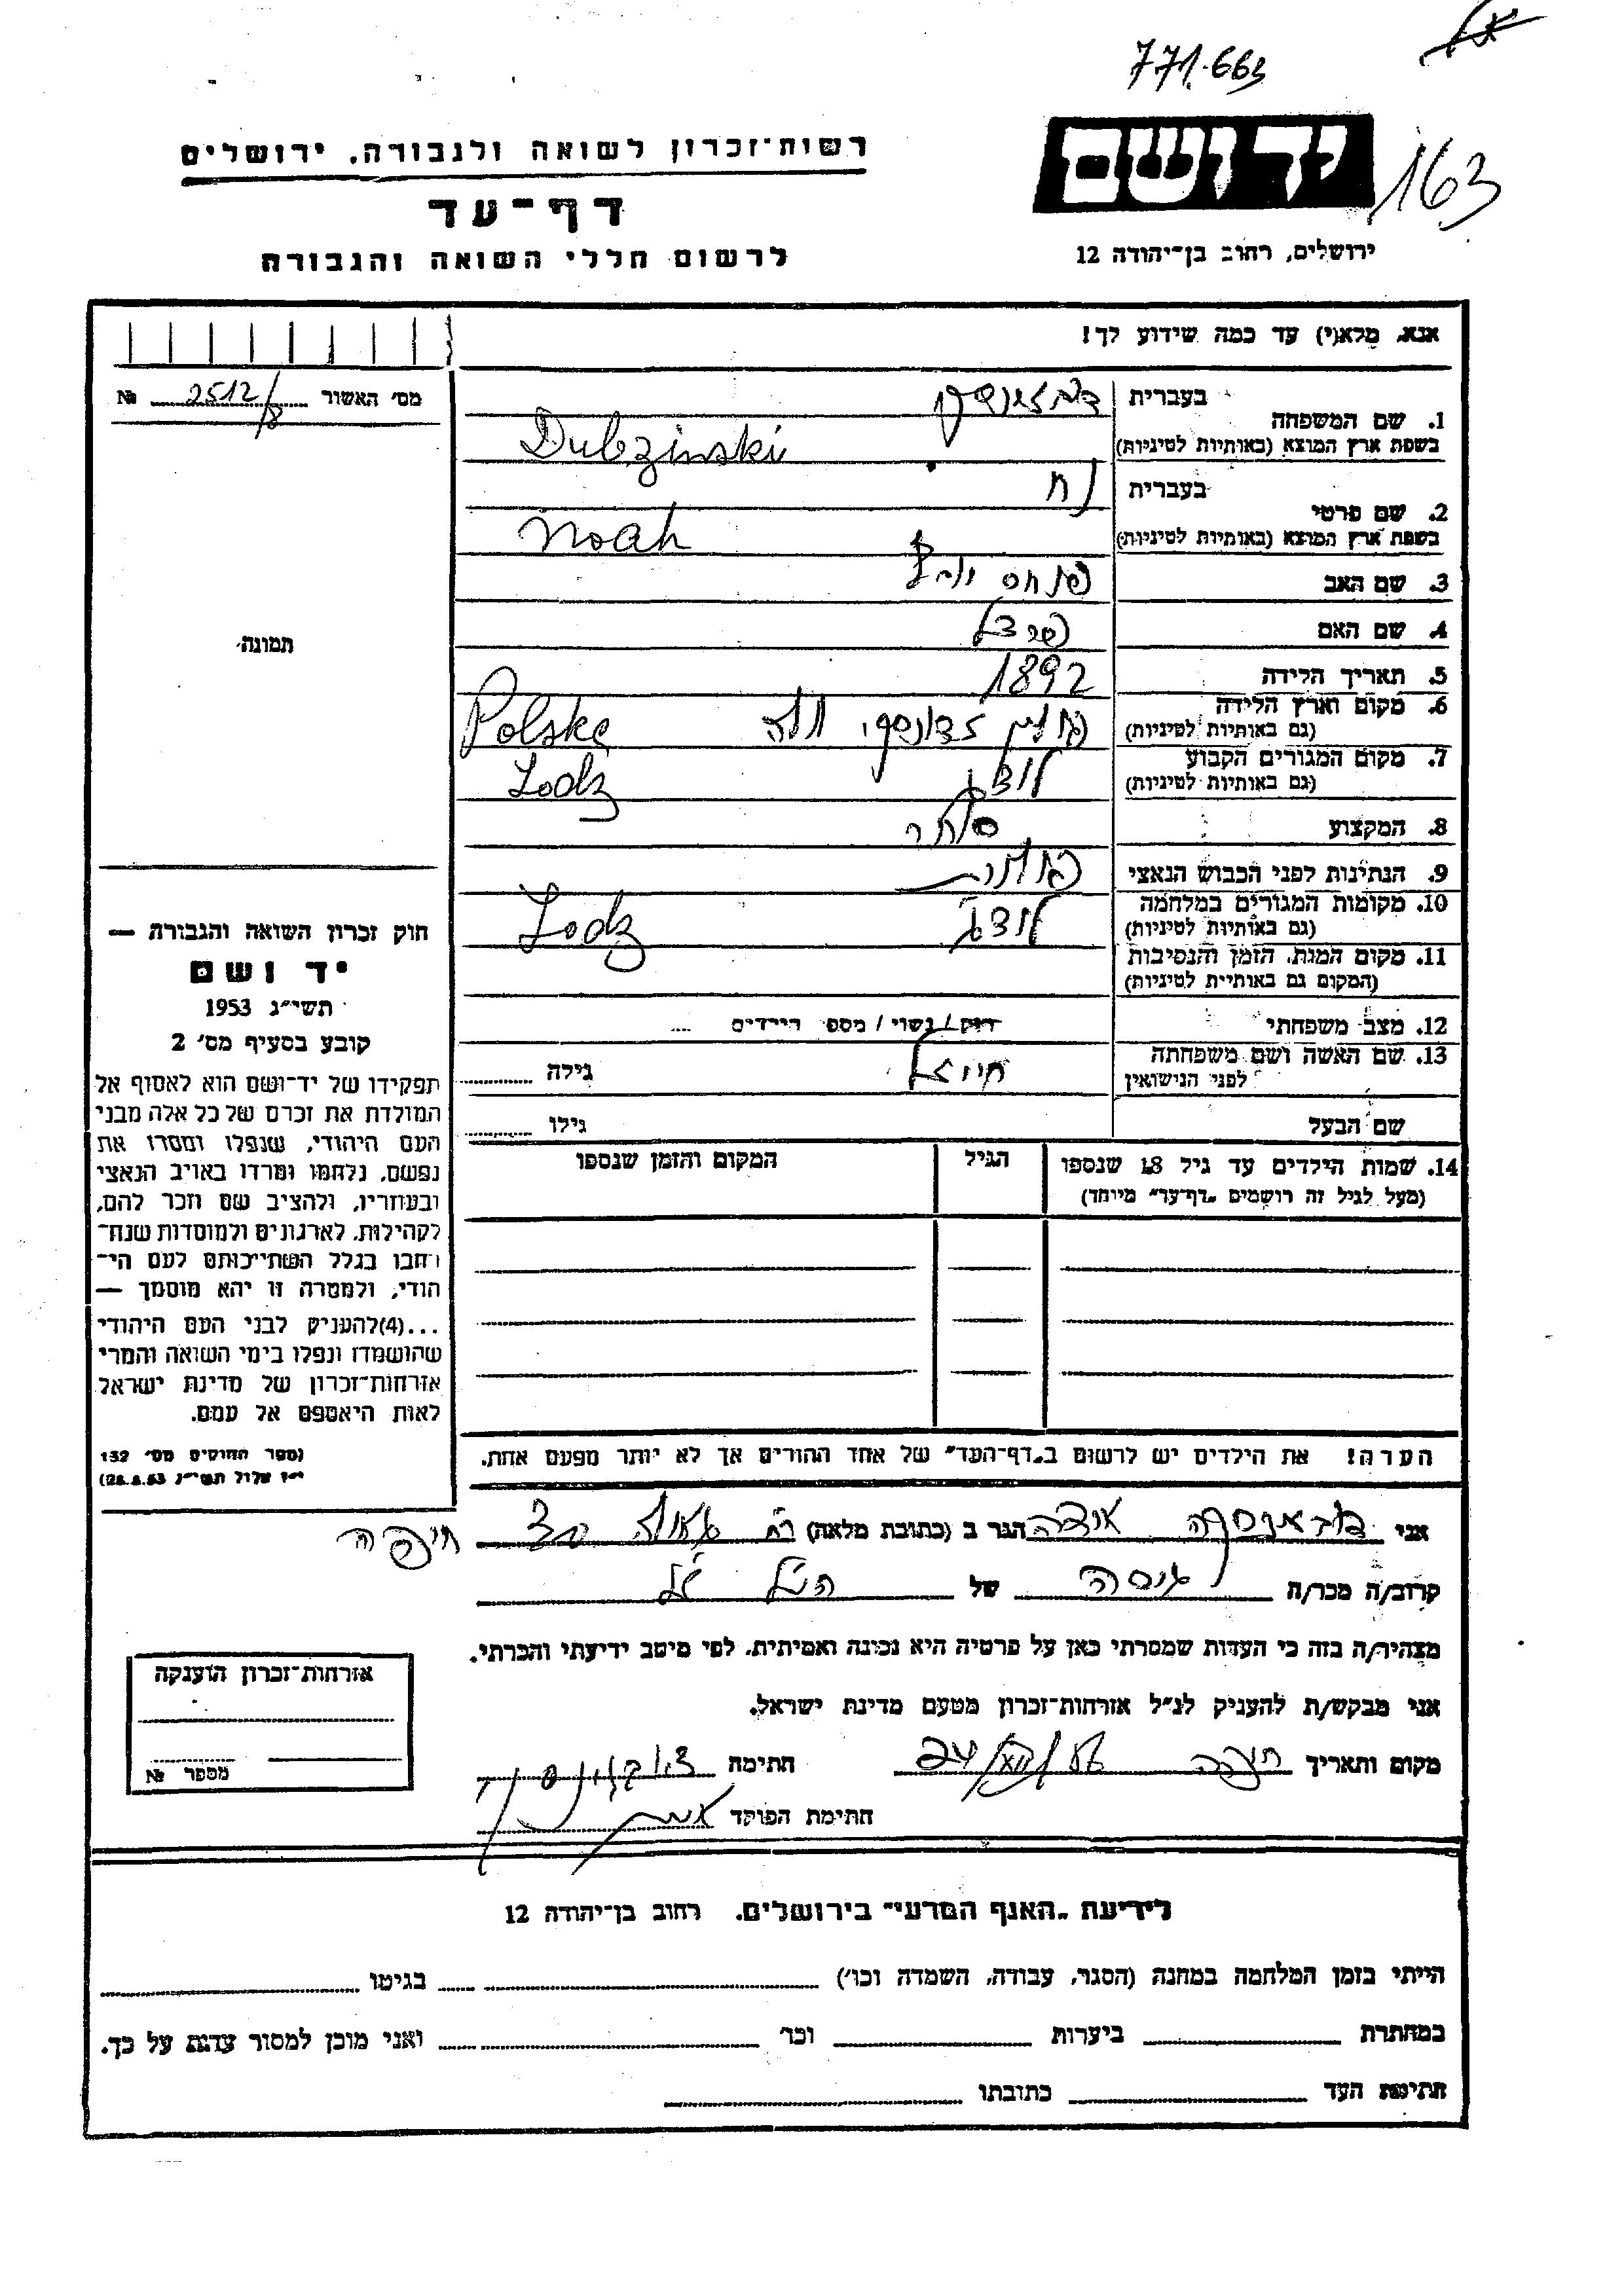 771.663
יד ושם
163
ירושלים, רחוב בן־יהודה 12
רשות־זכרון לשואה ולגבורה, ירושלים
דף־עד
לרשום חללי השואה והגבורה
אנא, מלא(י) עד כמה שידוע לך!
מס׳ האשור 2512/8 №
תמונה
1. שם המשפחה
בעברית
בשפת ארץ המוצא (באותיות לטיניות) Dubzinski
2. שם פרטי
בעברית נח
בשפת ארץ המוצא (באותיות לטיניות) Noah
3. שם האב פנחס
4. שם האם
5. תאריך הלידה 1892
6. מקום וארץ הלידה
(גם באותיות לטיניות) Polska
7. מקום המגורים הקבוע לודז׳
(גם באותיות לטיניות) Lodz
8. המקצוע סוחר
9. הנתינות לפני הכבוש הנאצי פולנית
10. מקומות המגורים במלחמה לודז׳
(גם באותיות לטיניות) Lodz
11. מקום המות, הזמן והנסיבות
(המקום גם באותיות לטיניות)
12. מצב משפחתי רווק / נשוי / מספר הילדים ....
13. שם האשה ושם משפחתה
לפני הנישואין
גילה
שם הבעל גילו
14. שמות הילדים עד גיל 18 שנספו
(מעל לגיל זה רושמים „דף־עד״ מיוחד)
הגיל
המקום והזמן שנספו
הערה! את הילדים יש לרשום ב„דף־העד״ של אחד ההורים אך לא יותר מפעם אחת.
חוק זכרון השואה והגבורה —
יד ושם
תשי״ג 1953
קובע בסעיף מס׳ 2
תפקידו של יד־ושם הוא לאסוף אל
המולדת את זכרם של כל אלה מבני
העם היהודי, שנפלו ומסרו את
נפשם, נלחמו ומרדו באויב הנאצי
ובעוזריו, ולהציב שם וזכר להם,
לקהילות, לארגונים ולמוסדות שנח־
רבו בגלל השתייכותם לעם הי־
הודי, ולמטרה זו יהא מוסמך —
...(4)להעניק לבני העם היהודי
שהושמדו ונפלו בימי השואה והמרי
אזרחות־זכרון של מדינת ישראל
לאות היאספם אל עמם.
(ספר החוקים מס׳ 132
י״ז אלול תשי״ג 28.8.53)
אני הגר ב (כתובת מלאה) חיפה
קרוב/ה מכר/ה גיסה של הנ״ל
מצהיר/ה בזה כי העדות שמסרתי כאן על פרטיה היא נכונה ואמיתית, לפי מיטב ידיעתי והכרתי.
אני מבקש/ת להעניק לנ״ל אזרחות־זכרון מטעם מדינת ישראל.
מקום ותאריך חיפה חתימה
חתימת הפוקד
אזרחות־זכרון הוענקה
מספר №
לידיעת „האגף המדעי״ בירושלים, רחוב בן־יהודה 12
הייתי בזמן המלחמה במחנה (הסגר, עבודה, השמדה וכו׳) בגיטו
במחתרת ביערות וכו׳ ואני מוכן למסור עדות על כך.
חתימת העד כתובתו